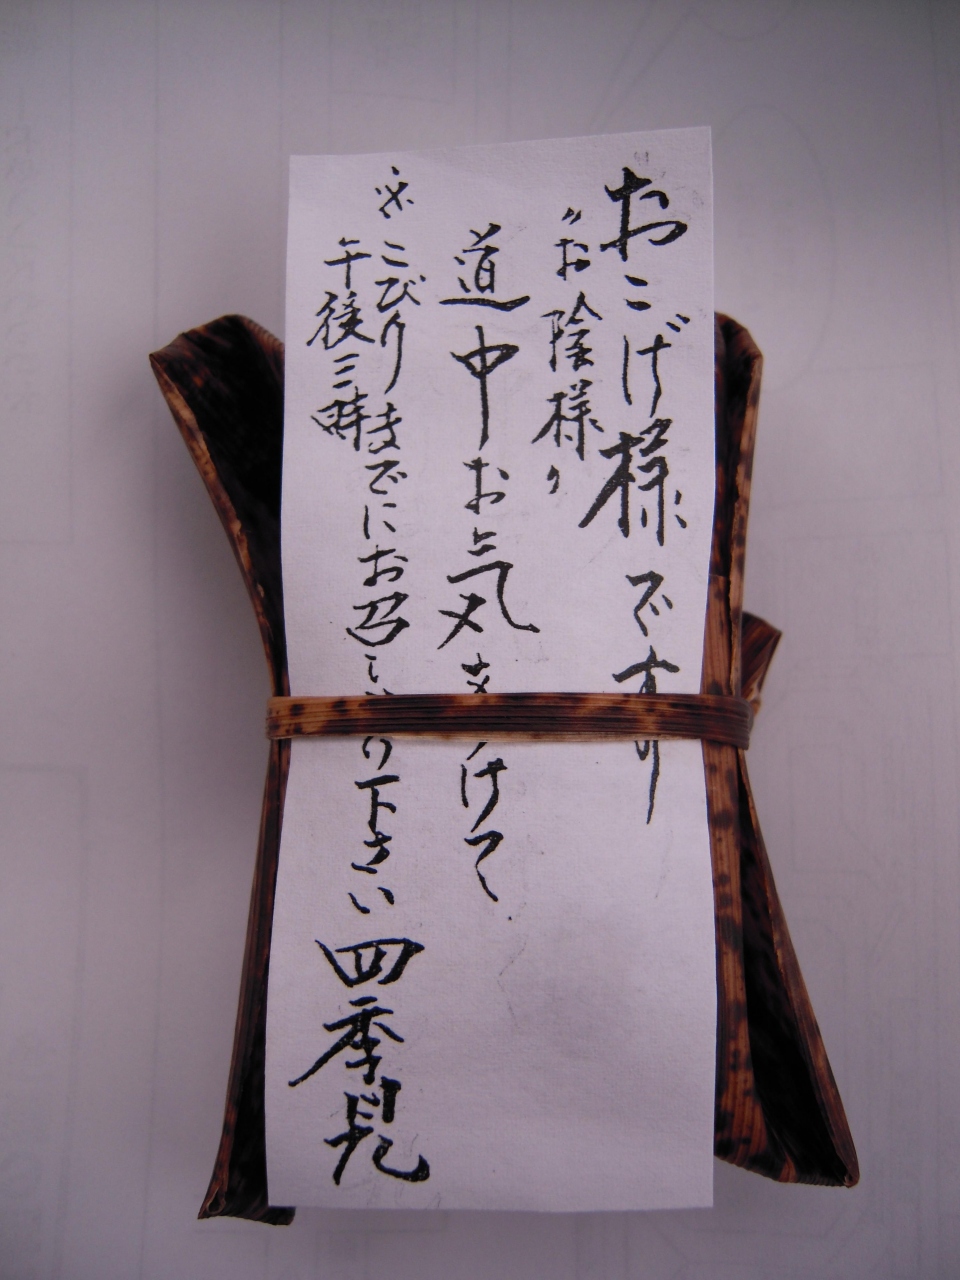 おこげ様です
〃お陰様〃
道中お気をつけて
※こびり
午後三時までにお召し上り下さい
四季